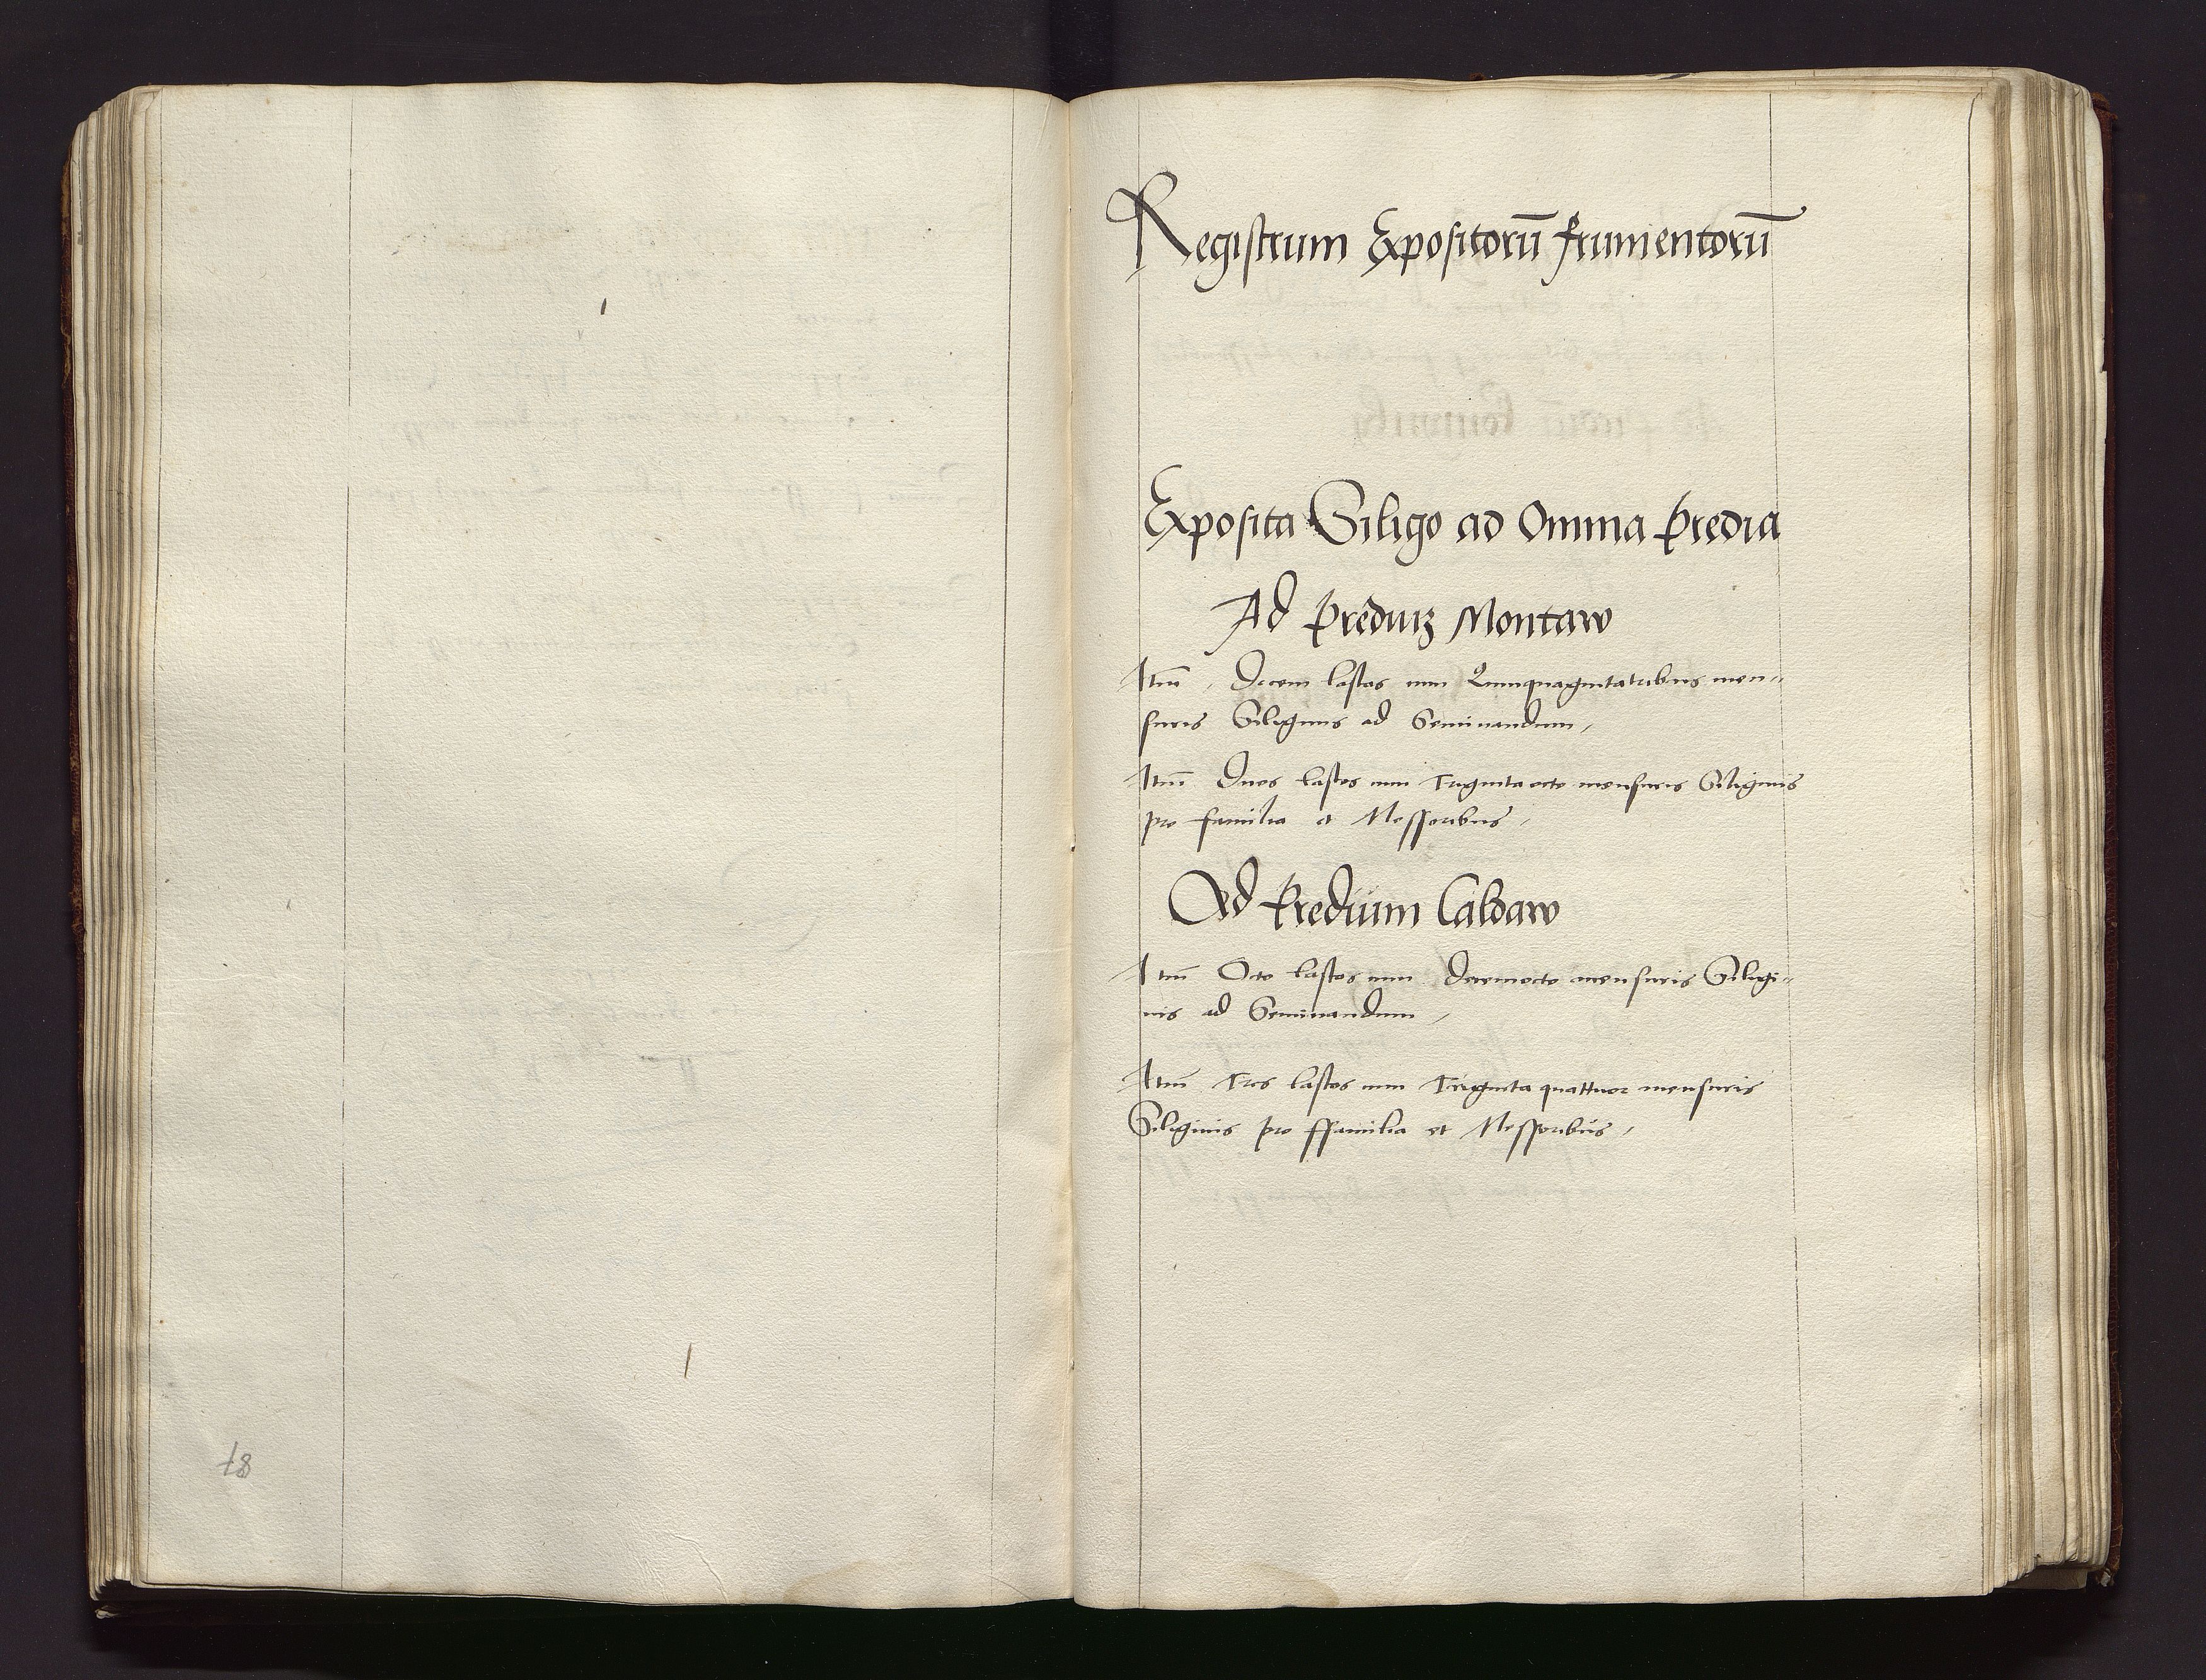 Registrum Expositorū frumentorū
Exposita Siligo ad Omnia predia
Ad prediūz Montaw
Itm̄ , Decem lastos cum Quinquagintatribus men-
suris Siliginis ad Seminandum,
Itm̄ Duos lastos cum Trigintaocto mensuris Siliginis
pro familia et Messoribus,
Ad Predium Caldaw
Itm̄ Octo lastos cum Decemocto mensuris Siligi-
nis ad Seminandum,
Itm̄ Tres lastos cum Triginta quattuor mensuris
Siliginis pro ffamilia et Messoribus,